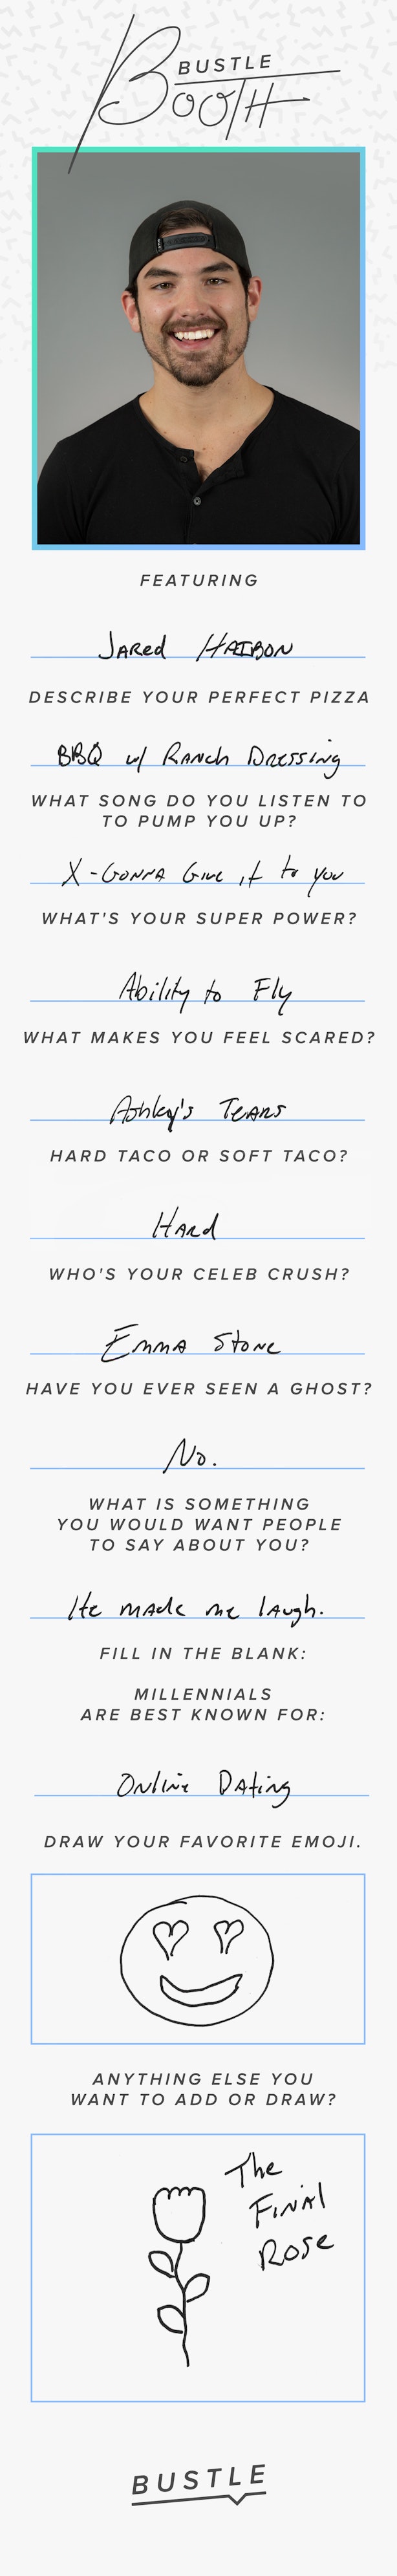 BUSTLE
BOOTH
FEATURING
JARed HAIBON
DESCRIBE YOUR PERFECT PIZZA
BBQ w/ RANCH DRESSING
WHAT SONG DO YOU LISTEN TO
TO PUMP YOU UP?
X-GONNA GIVE it to you
WHAT'S YOUR SUPER POWER?
Ability to Fly
WHAT MAKES YOU FEEL SCARED?
Ashley's TEARS
HARD TACO OR SOFT TACO?
HARd
WHO'S YOUR CELEB CRUSH?
EMMA Stone
HAVE YOU EVER SEEN A GHOST?
No.
WHAT IS SOMETHING
YOU WOULD WANT PEOPLE
TO SAY ABOUT YOU?
He made me laugh.
FILL IN THE BLANK:
MILLENNIALS
ARE BEST KNOWN FOR:
Online Dating
DRAW YOUR FAVORITE EMOJI.
ANYTHING ELSE YOU
WANT TO ADD OR DRAW?
The
FINAL
ROSE
BUSTLE